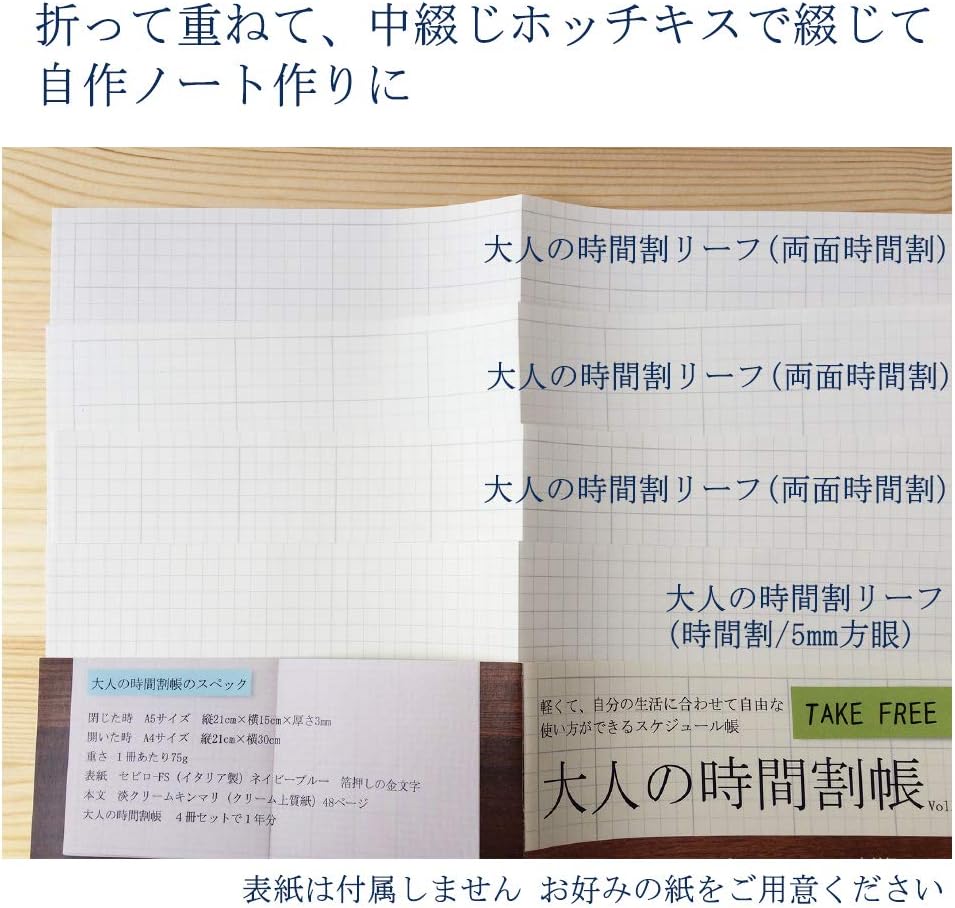 折って重ねて、中綴じホッチキスで綴じて
自作ノート作りに
大人の時間割リーフ(両面時間割)
大人の時間割リーフ(両面時間割)
大人の時間割リーフ(両面時間割)
大人の時間割リーフ
(時間割/5mm方眼)
大人の時間割帳のスペック
閉じた時 A5サイズ 縦21cm×横15cm×厚さ3mm
開いた時 A4サイズ 縦21cm×横30cm
重さ 1冊あたり75g
表紙 セビロ-FS(イタリア製)ネイビーブルー 箔押しの金文字
本文 淡クリームキンマリ(クリーム上質紙)48ページ
大人の時間割帳 4冊セットで1年分
軽くて、自分の生活に合わせて自由な
使い方ができるスケジュール帳
TAKE FREE
大人の時間割帳 Vol
表紙は付属しません お好みの紙をご用意ください